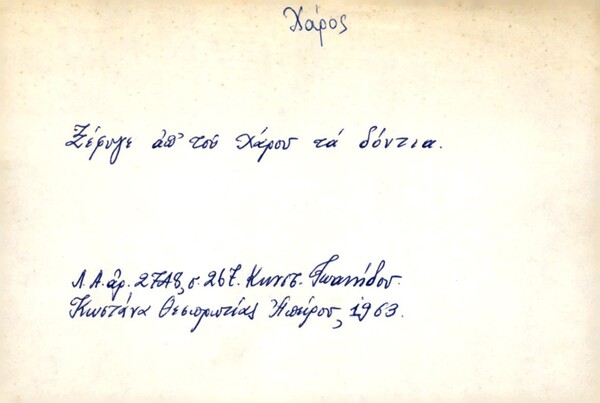 Χάρος
Ξέφυγε ἀπ' τοῦ Χάρου τά δόντια.
Λ.Α. ἀρ. 2748, σ. 267. Κωνσ. Ἰωαννίδου.
Κωστάνα Θεσπρωτίας Ἠπείρου, 1963.